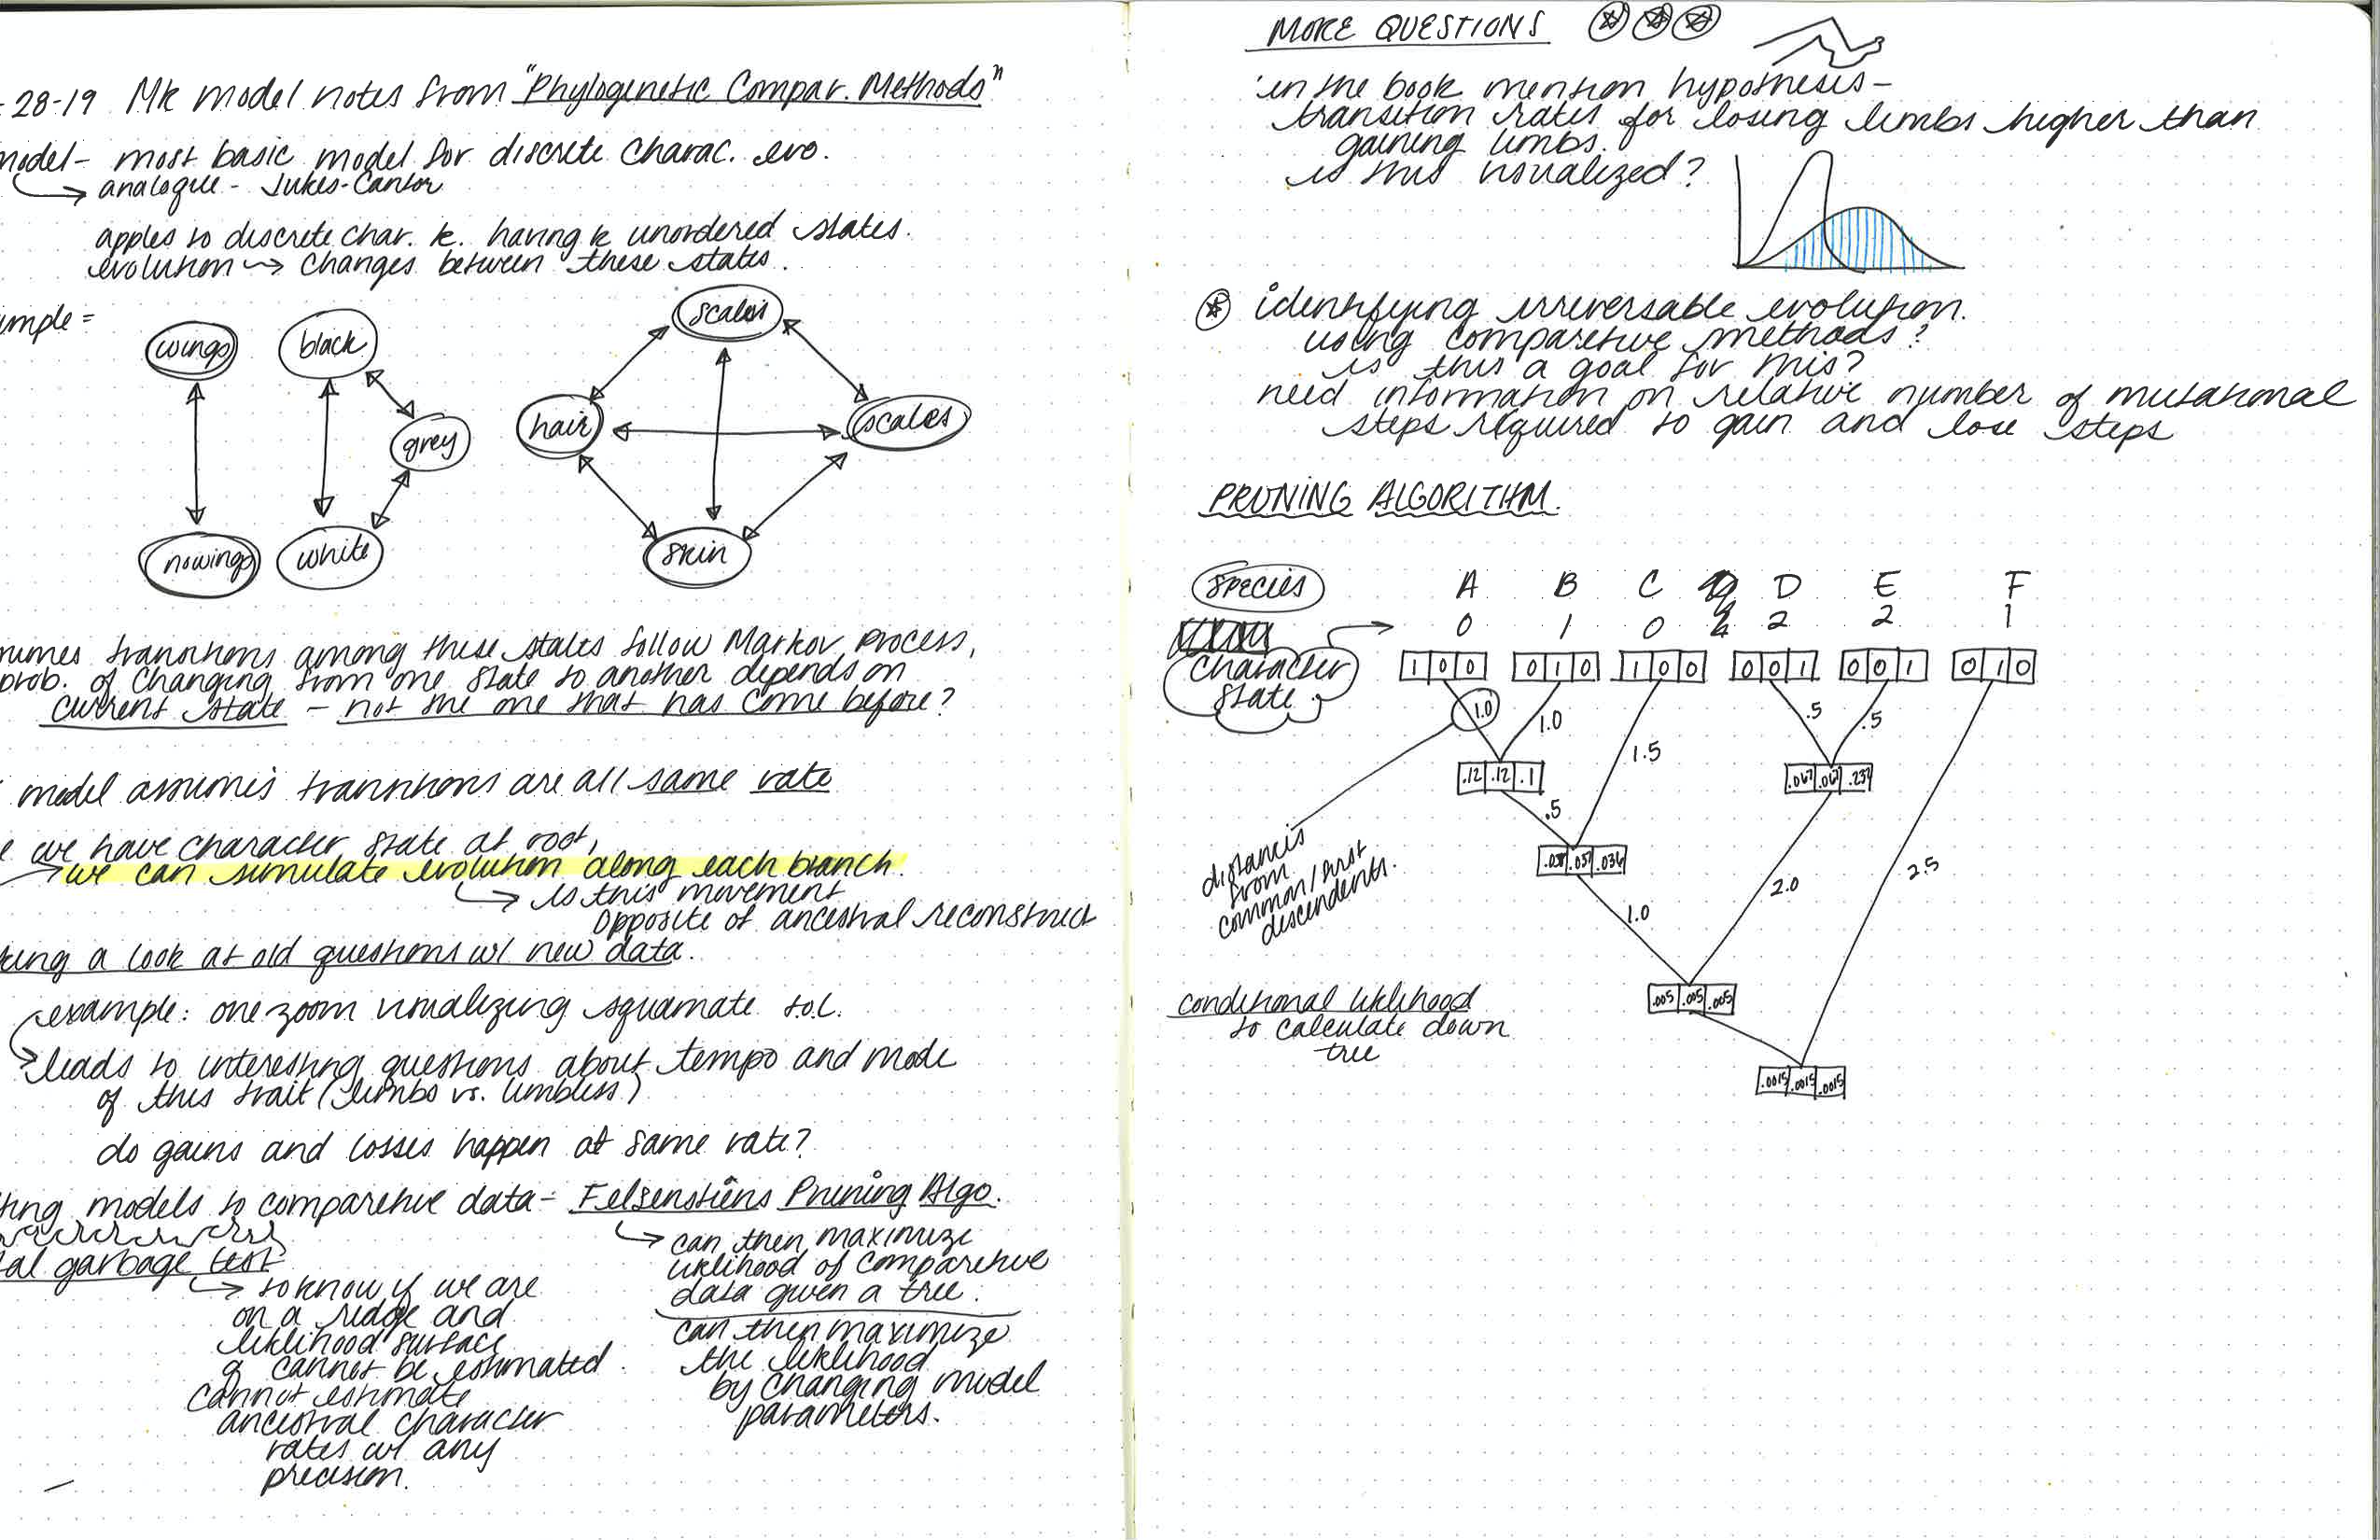 28-19 Mk model notes from "Phylogenetic Compar. Methods"
model - most basic model for discrete charac. evo.
analogue - Jukes-Cantor
apples to discrete char. k. having k unordered states.
evolution → changes between these states.
mple =
wings
nowings
black
grey
white
scales
hair
scales
skin
umes transitions among these states follow Markov process,
prob. of changing from one state to another depends on
current state - not the one that has come before?
model assumes transitions are all same rate
we have character state at root,
→ we can simulate evolution along each branch.
→ is this movement
opposite of ancestral reconstruct
king a look at old questions w/ new data.
example: onezoom visualizing squamate t.o.l.
→ leads to interesting questions about tempo and mode
of this trait (limbs vs. limbless)
do gains and losses happen at same rate?
ting models to comparetive data - Felsenstiens Pruning Algo.
→ can then maximize
liklihood of comparetive
data given a tree.
can then maximize
the liklihood
by changing model
parameters.
al garbage test
→ to know if we are
on a ridge and
liklihood surface
q cannot be estimated.
cannot estimate
ancestral character
rates w/ any
precision.
MORE QUESTIONS
in the book mention hypothesis -
transition rates for losing limbs higher than
gaining limbs.
is this visualized?
identifying irreversable evolution.
using comparetive methods?
is this a goal for this?
need information on relative number of mutational
steps required to gain and lose steps
PRUNING ALGORITHM.
species A B C D E F
character state → 0 1 0 2 2 1
1 0 0 0 1 0 1 0 0 0 0 1 0 0 1 0 1 0
1.0 1.0 1.5 .5 .5
.12 .12 .1 .067 .067
.5
.036
distances
from
common/first
descendents.
1.0 2.0 2.5
conditional liklihood
to calculate down
tree
.005 .005 .005
.0015 .0015 .0015